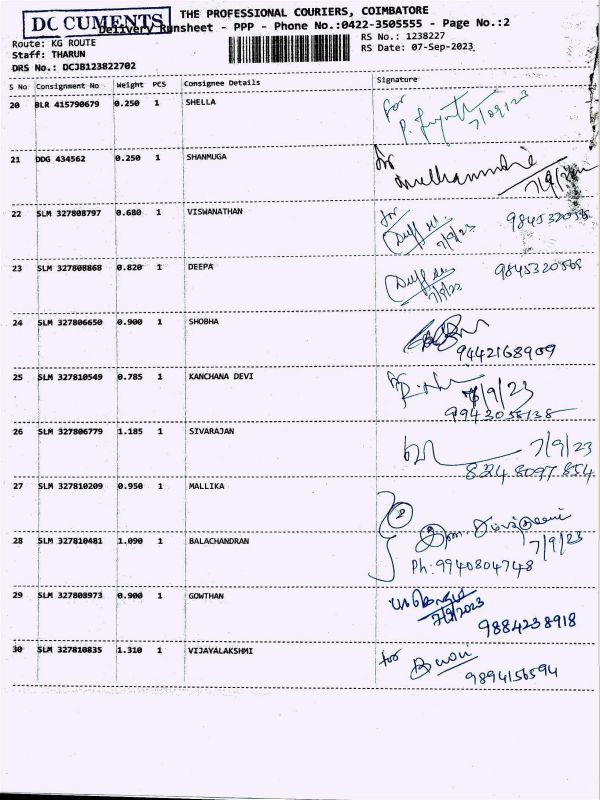 DC CUMENTS
THE PROFESSIONAL COURIERS, COIMBATORE
Delivery Runsheet - PPP - Phone No.:0422-3505555 - Page No.:2
Route: KG ROUTE
RS No.: 1238227
Staff: THARUN
RS Date: 07-Sep-2023
DRS No.: DCJB123822702
S No Consignment No Weight PCS Consignee Details Signature
20 BLR 415790679 0.250 1 SHELLA for
7/09/23
21 DDG 434562 0.250 1 SHANMUGA for
22 SLM 327808797 0.680 1 VISWANATHAN for
7/9/23
23 SLM 327808868 0.820 1 DEEPA
7/9/23
24 SLM 327806650 0.900 1 SHOBHA
9442168909
25 SLM 327810549 0.785 1 KANCHANA DEVI for 7/9/23
26 SLM 327806779 1.185 1 SIVARAJAN 7/9/23
8248097854
27 SLM 327810209 0.950 1 MALLIKA 2
28 SLM 327810481 1.090 1 BALACHANDRAN 7/9/23
Ph:9940804748
29 SLM 327808973 0.900 1 GOWTHAN
7/9/2023
9884238918
30 SLM 327810835 1.310 1 VIJAYALAKSHMI for
9894156594